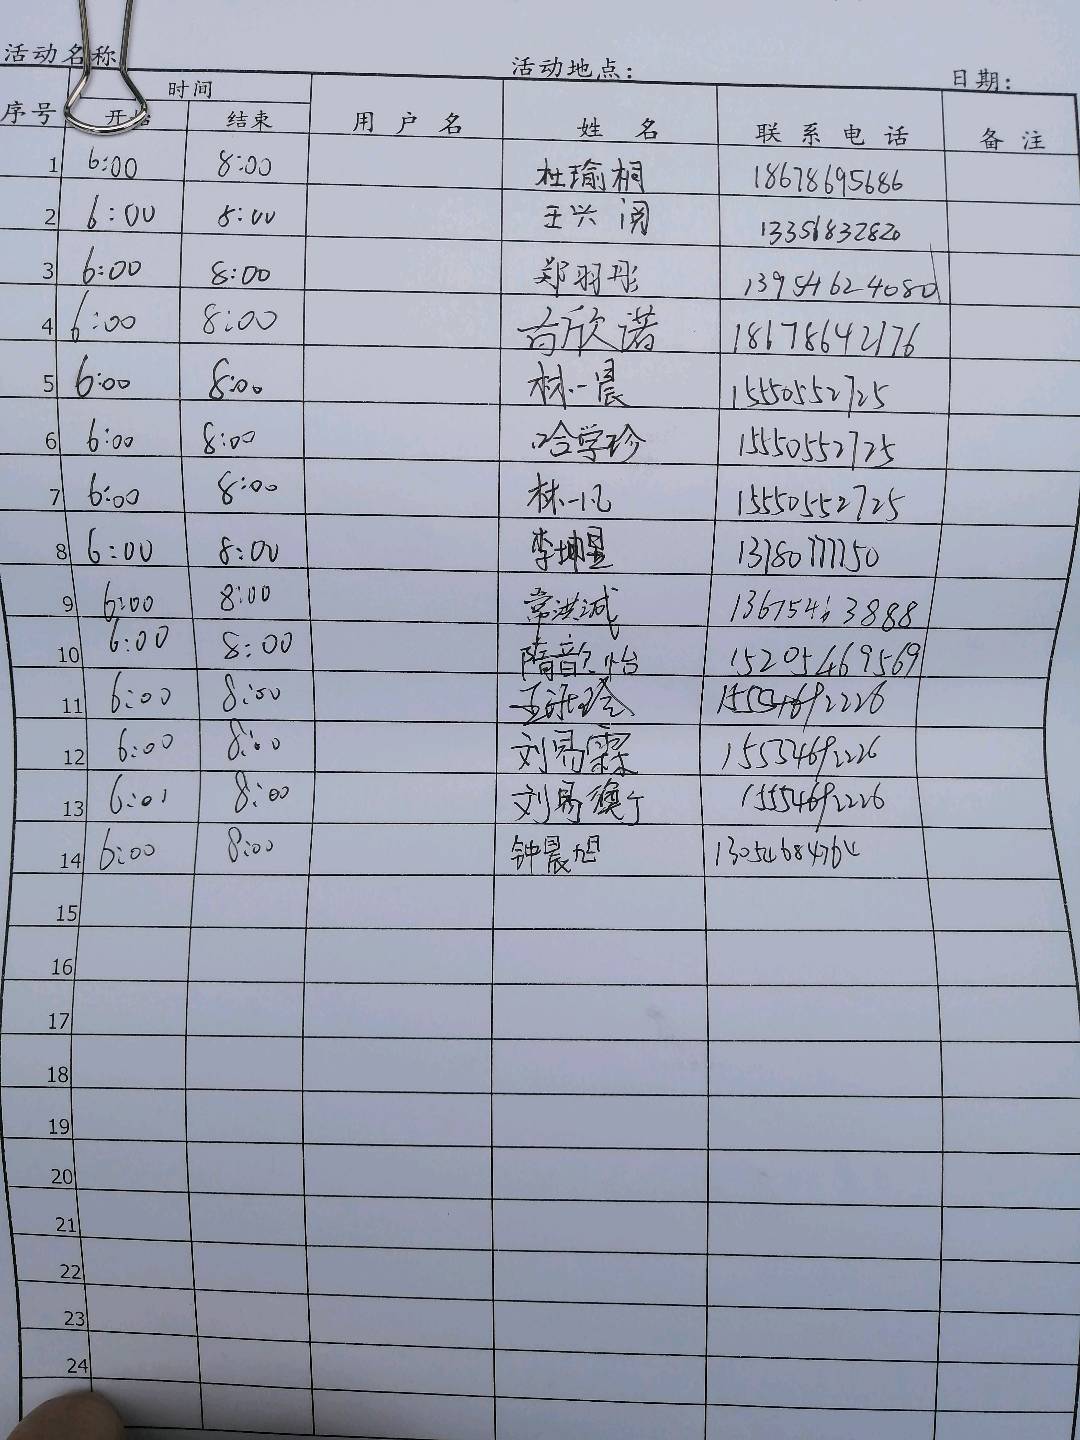 活动名称 活动地点： 日期：
序号 时间 用户名 姓名 联系电话 备注
开始 结束
1 6:00 8:00 杜瑜桐 18678695686
2 6:00 8:00 王兴阅 13356832820
3 6:00 8:00 郑羽彤 13954624080
4 6:00 8:00 高欣诺 18678642176
5 6:00 8:00 林一晨 15550552725
6 6:00 8:00 哈学珍 15550552725
7 6:00 8:00 林一凡 15550552725
8 6:00 8:00 李坤星
9 6:00 8:00 常洪诚
10 6:00 8:00 隋歆怡 15205469569
11 6:00 8:00
12 6:00 8:00 刘易霖 15554692226
13 6:00 8:00 刘易 15554692226
14 6:00 8:00 钟晨旭 13054684764
15
16
17
18
19
20
21
22
23
24